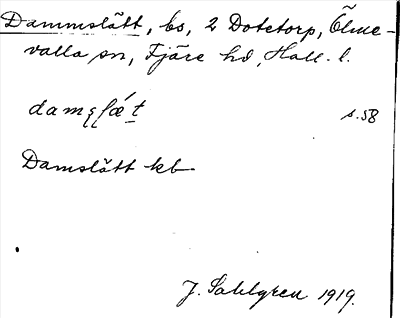 Dammslätt, bs, 2 Dotetorp, Ölme-
valla sn, Fjäre hd, Hall. l.
s. 58
Damslätt kb.
J. Sahlgren 1919.